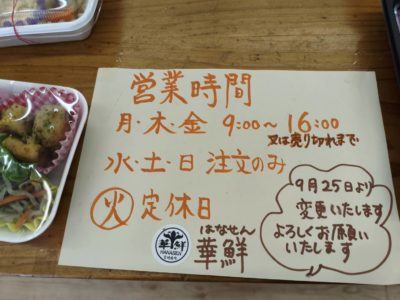 営業時間
月・木・金 9:00～16:00
又は売り切れまで
水・土・日 注文のみ
火 定休日
はなせん
華鮮
華鮮
HANASEN
9月25日より
変更いたします
よろしくお願い
いたします